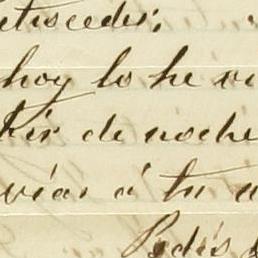 etroceder;
hoy lo he vi
tir de noche
viar á tu a
Pedís